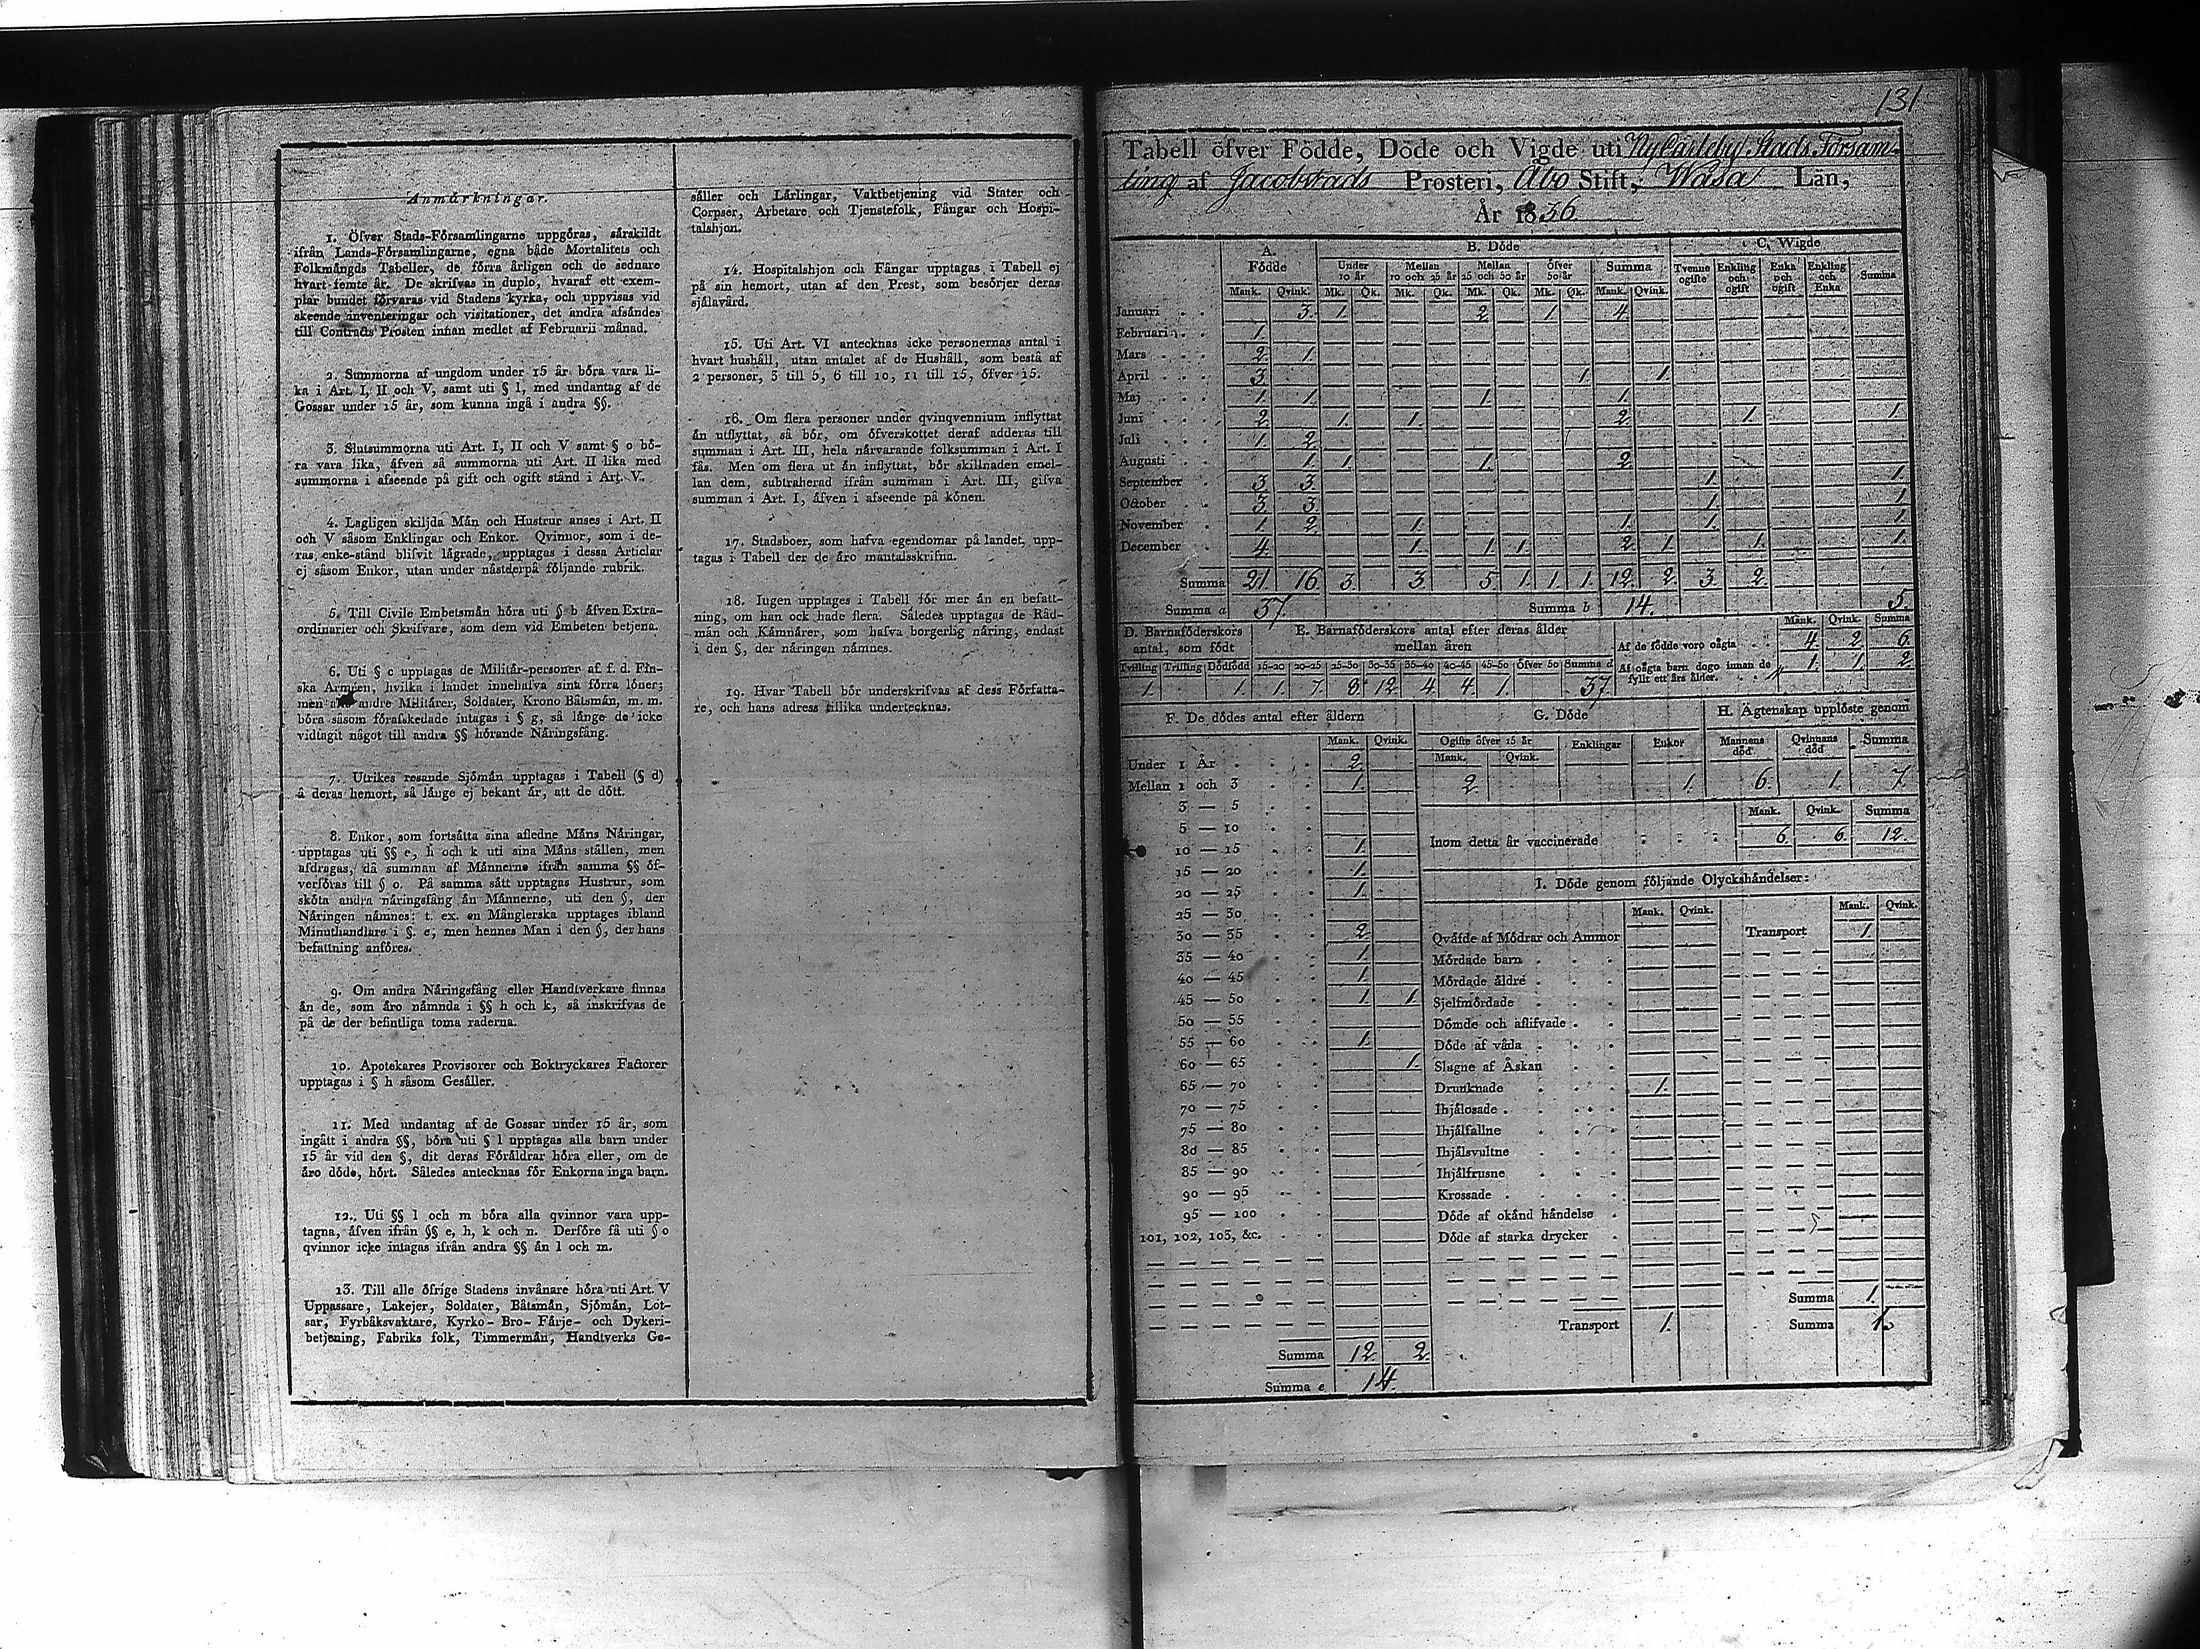 Anmärkningar.
1. Öfver Stads-Församlingarne uppgöras, särskildt
ifrån Lands-Församlingarne, egna både Mortalitets och
Folkmängds Tabeller, de förra årligen och de sednare
hvart femte år. De skrifvas in duplo, hvaraf ett exem-
plar bundet förvaras vid Stadens kyrka, och uppvisas vid
skeende inventeringar och visitationer, det andra afsändes
till Contracts Prosten innan medlet af Februarii månad.
2. Summorna af ungdom under 15 år böra vara li-
ka i Art. I, II och V, samt uti § l, med undantag af de
Gossar under 15 år, som kunna ingå i andra §§.
3. Slutsummorna uti Art. I, II och V samt § o bö-
ra vara lika, äfven så summorna uti Art. II lika med
summorna i afseende på gift och ogift stånd i Art. V.
4. Lagligen skiljda Män och Hustrur anses i Art. II
och V såsom Enklingar och Enkor. Qvinnor, som i de-
ras enke-stånd blifvit lägrade, upptagas i dessa Articlar
ej såsom Enkor, utan under nästderpå följande rubrik.
5. Till Civile Embetsmän höra uti § b äfven Extra-
ordinarier och Skrifvare, som dem vid Embeten betjena.
6. Uti § c upptagas de Militär-personer af f. d. Fin-
ska Armeen, hvilka i landet innehafva sina förra löner;
men alla andre Militärer, Soldater, Krono Båtsmän, m. m.
böra såsom förafskedade intagas i § g, så länge de icke
vidtagit något till andra §§ hörande Näringsfång.
7. Utrikes resande Sjömän upptagas i Tabell (§ d)
å deras hemort, så länge ej bekant är, att de dött.
8. Enkor, som fortsätta sina afledne Mäns Näringar,
upptagas uti §§ e, h och k uti sina Mäns ställen, men
afdragas, då summan af Männerne ifrån samma §§ öf-
verföras till § o. På samma sätt upptagas Hustrur, som
sköta andra näringsfång än Männerne, uti den §, der
Näringen nämnes: t. ex. en Månglerska upptages ibland
Minuthandlare i § e, men hennes Man i den §, der hans
befattning anföres.
9. Om andra Näringsfång eller Handtverkare finnas
än de, som äro nämnda i §§ h och k, så inskrifvas de
på de der befintliga toma raderna.
10. Apotekares Provisorer och Boktryckares Factorer
upptagas i § h såsom Gesäller.
11. Med undantag af de Gossar under 15 år, som
ingått i andra §§, böra uti § l upptagas alla barn under
15 år vid den §, dit deras Föräldrar höra eller, om de
äro döde, hört. Således antecknas för Enkorna inga barn.
12. Uti §§ l och m böra alla qvinnor vara upp-
tagna, äfven ifrån §§ e, h, k och n. Derföre få uti § o
qvinnor icke intagas ifrån andra §§ än l och m.
13. Till alle öfrige Stadens invånare höra uti Art. V
Uppassare, Lakejer, Soldater, Båtsmän, Sjömän, Lot-
sar, Fyrbåksvaktare, Kyrko- Bro- Färje- och Dykeri-
betjening, Fabriks folk, Timmermän, Handtverks Ge-
säller och Lärlingar, Vaktbetjening vid Stater och
Corpser, Arbetare och Tjenstefolk, Fångar och Hospi-
talshjon.
14. Hospitalshjon och Fångar upptagas i Tabell ej
på sin hemort, utan af den Prest, som besörjer deras
själavård.
15. Uti Art. VI antecknas icke personernas antal i
hvart hushåll, utan antalet af de Hushåll, som bestå af
2 personer, 3 till 5, 6 till 10, 11 till 15, öfver 15.
16. Om flera personer under qvinqvennium inflyttat
än utflyttat, så bör, om öfverskottet deraf adderas till
summan i Art. III, hela närvarande folksumman i Art. I
fås. Men om flera ut än inflyttat, bör skillnaden emel-
lan dem, subtraherad ifrån summan i Art. III, gifva
summan i Art. I, äfven i afseende på könen.
17. Stadsboer, som hafva egendomar på landet, upp-
tagas i Tabell der de äro mantalsskrifna.
18. Ingen upptages i Tabell för mer än en befatt-
ning, om han ock hade flera. Således upptagas de Råd-
män och Kämnärer, som hafva borgerlig näring, endast
i den §, der näringen nämnes.
19. Hvar Tabell bör underskrifvas af dess Författa-
re, och hans adress tillika undertecknas.
131
Tabell öfver Födde, Döde och Vigde uti NyCarleby Stads Försam-
ling af Jacobstads Prosteri, Åbo Stift, Wasa Län,
År 1836
A. Födde B. Döde C. Wigde
Under 10 år Mellan 10 och 25 år Mellan 25 och 50 år Öfver 50 år Summa Tvenne ogifte Enkling och ogift Enka och ogift Enkling och Enka Summa
Mank. Qvink. Mk. Qk. Mk. Qk. Mk. Qk. Mk. Qk. Mank. Qvink.
Januari 3. 1. 2. 1. 4.
Februari 1.
Mars 2. 1.
April 3. 1. 1.
Maj 1. 1. 1. 1.
Juni 2. 1. 1. 2. 1. 1.
Juli 1. 2.
Augusti 1. 1. 1. 2.
September 3. 3. 1. 1.
October 3. 3. 1. 1.
November 1. 2. 1. 1. 1. 1.
December 4. 1. 1. 1. 2. 1. 1. 1.
Summa 21 16 3. 3. 5. 1. 1. 1. 12. 2. 3. 2.
Summa a 37. Summa b 14. 5.
D. Barnaföderskors antal, som födt
Tvilling Trilling Dödfödd
1. 1.
E. Barnaföderskors antal efter deras ålder
mellan åren
15-20 20-25 25-30 30-35 35-40 40-45 45-50 Öfver 50 Summa d
1. 7. 8. 12. 4. 4. 1. 37.
Mank. Qvink. Summa
Af de födde voro oägta 4. 2. 6.
Af oägta barn dogo innan de
fyllt ett års ålder. 1. 1. 2.
F. De dödes antal efter åldern
Mank. Qvink.
Under 1 År 2.
Mellan 1 och 3 1.
3 — 5
5 — 10
10 — 15 1.
15 — 20 1.
20 — 25 1.
25 — 30
30 — 35 2.
35 — 40 1.
40 — 45 1.
45 — 50 1. 1.
50 — 55
55 — 60 1.
60 — 65 1.
65 — 70
70 — 75
75 — 80
80 — 85
85 — 90
90 — 95
95 — 100
101, 102, 103, &c.
Summa 12. 2.
Summa e 14.
G. Döde
Ogifte öfver 15 år Enklingar Enkor
Mank. Qvink.
2. 1.
H. Ägtenskap upplöste genom
Mannens död Qvinnans död Summa
6. 1. 7.
Mank. Qvink. Summa
Inom detta år vaccinerade 6. 6. 12.
I. Döde genom följande Olyckshändelser:
Mank. Qvink. Mank. Qvink.
Qväfde af Mödrar och Ammor Transport 1.
Mördade barn
Mördade äldre
Sjelfmördade
Dömde och aflifvade
Döde af våda
Slagne af Åskan
Drunknade 1.
Ihjälosade
Ihjälfallne
Ihjälsvultne
Ihjälfrusne
Krossade
Döde af okänd händelse
Döde af starka drycker
Summa 1.
Transport 1. Summa 1.